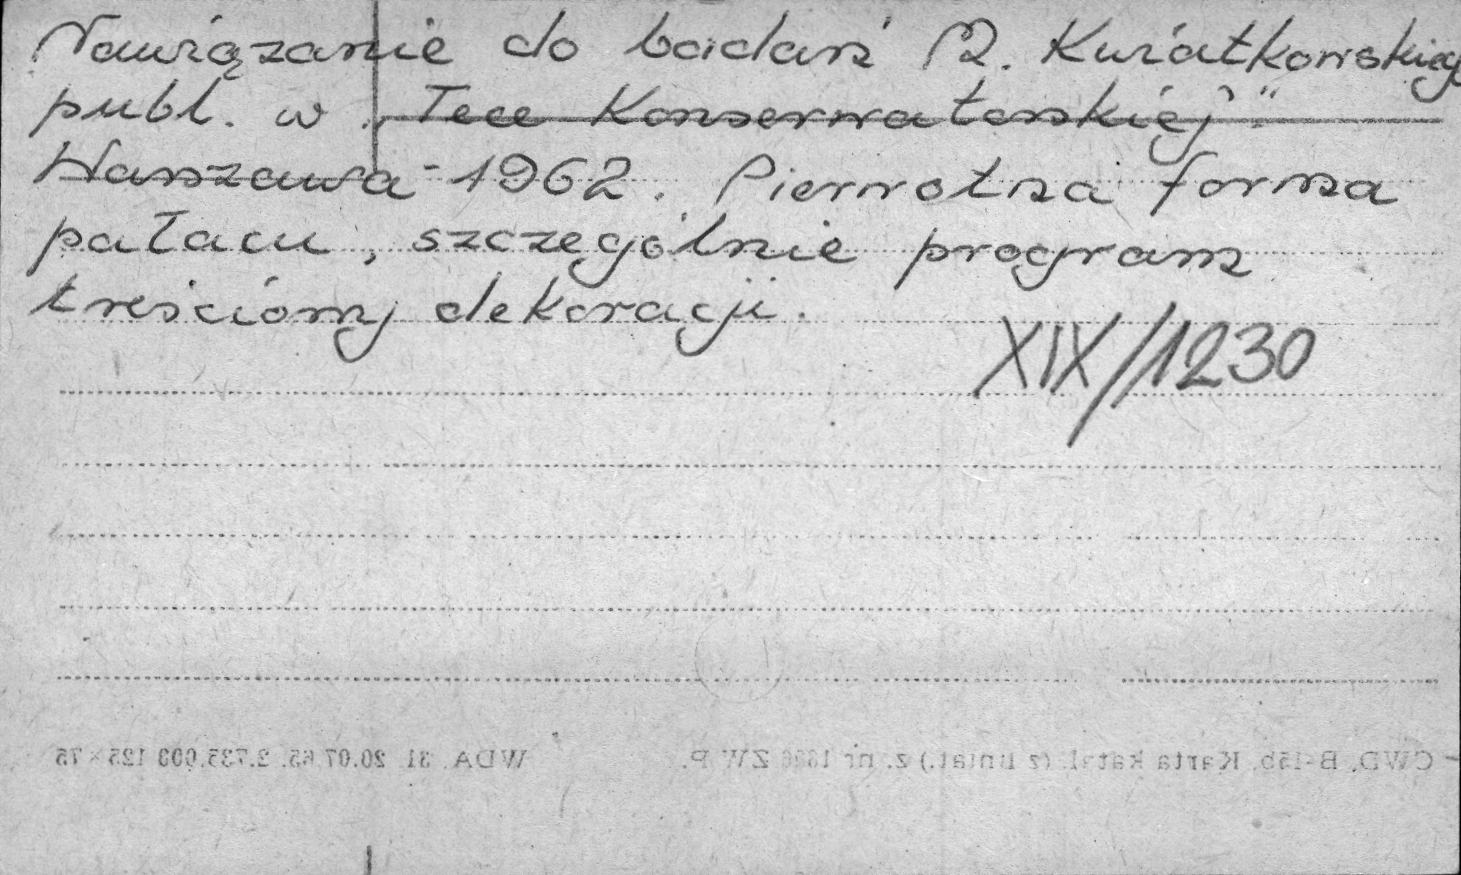 Nawiązanie do badań M. Kwiatkowskiego
publ. w „Tece Konserwatorskiej"
Warszawa - 1962. Pierwotna forma
pałacu, szczególnie program
treściowy dekoracji.
XIX/1230
CWD. B-15b. Karta katal. (z liniat.) z. nr ZWP. WDA. 31. 20.07.65. 2.735.000 125×75